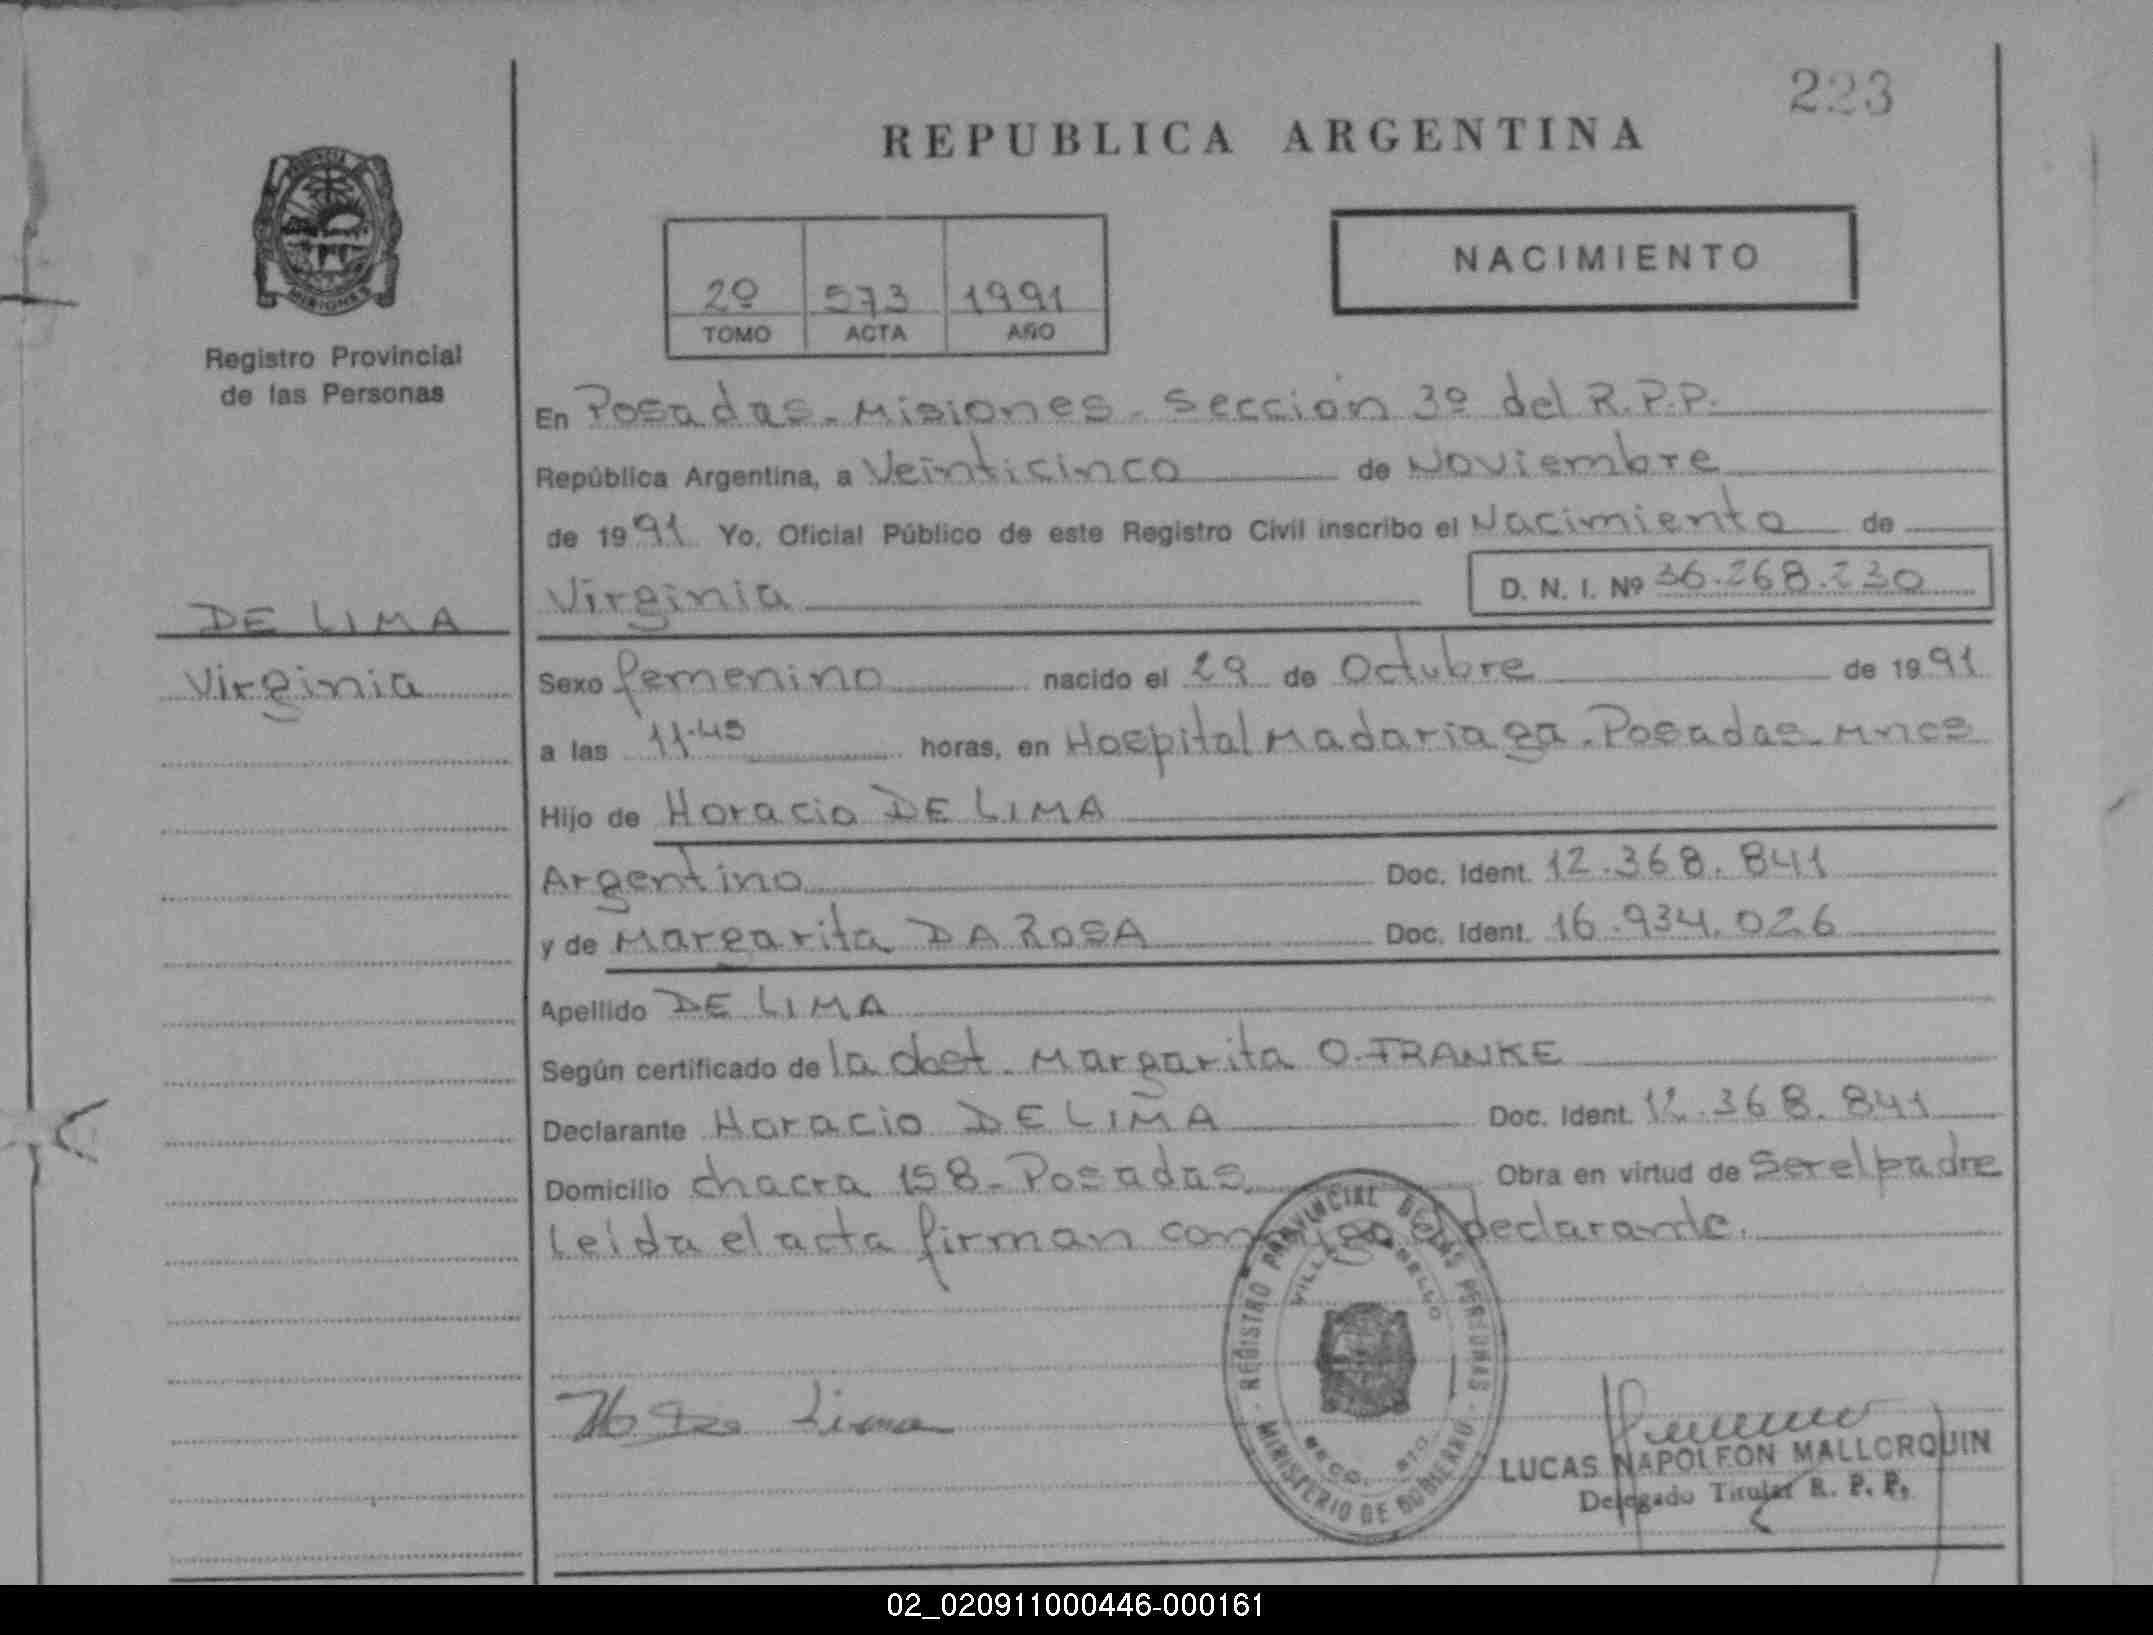 223
REPUBLICA ARGENTINA
NACIMIENTO
2º 573 1991
TOMO ACTA AÑO
PROVINCIA
MISIONES
Registro Provincial
de las Personas
DE LIMA
Virginia
En Posadas - Misiones - Sección 3º del R.P.P.
República Argentina, a Veinticinco de Noviembre
de 1991 Yo, Oficial Público de este Registro Civil inscribo el Nacimiento de
Virginia D. N. I. Nº 36.268.230
Sexo femenino nacido el 29 de Octubre de 1991
a las 11.45 horas, en Hospital Madariaga. Posadas - Mnes
Hijo de Horacio DE LIMA
Argentino Doc. Ident. 12.368.841
y de Margarita DA ROSA Doc. Ident. 16.934.026
Apellido DE LIMA
Según certificado de la obst. Margarita O. FRANKE
Declarante Horacio DE LIMA Doc. Ident. 12.368.841
Domicilio chacra 158 - Posadas Obra en virtud de Ser el padre
Leída el acta firman conmigo el declarante.
REGISTRO PROVINCIAL DE LAS PERSONAS
MINISTERIO DE GOBIERNO
H De Lima
LUCAS NAPOLEON MALLORQUIN
Delegado Titular R. P. P.
02_020911000446-000161